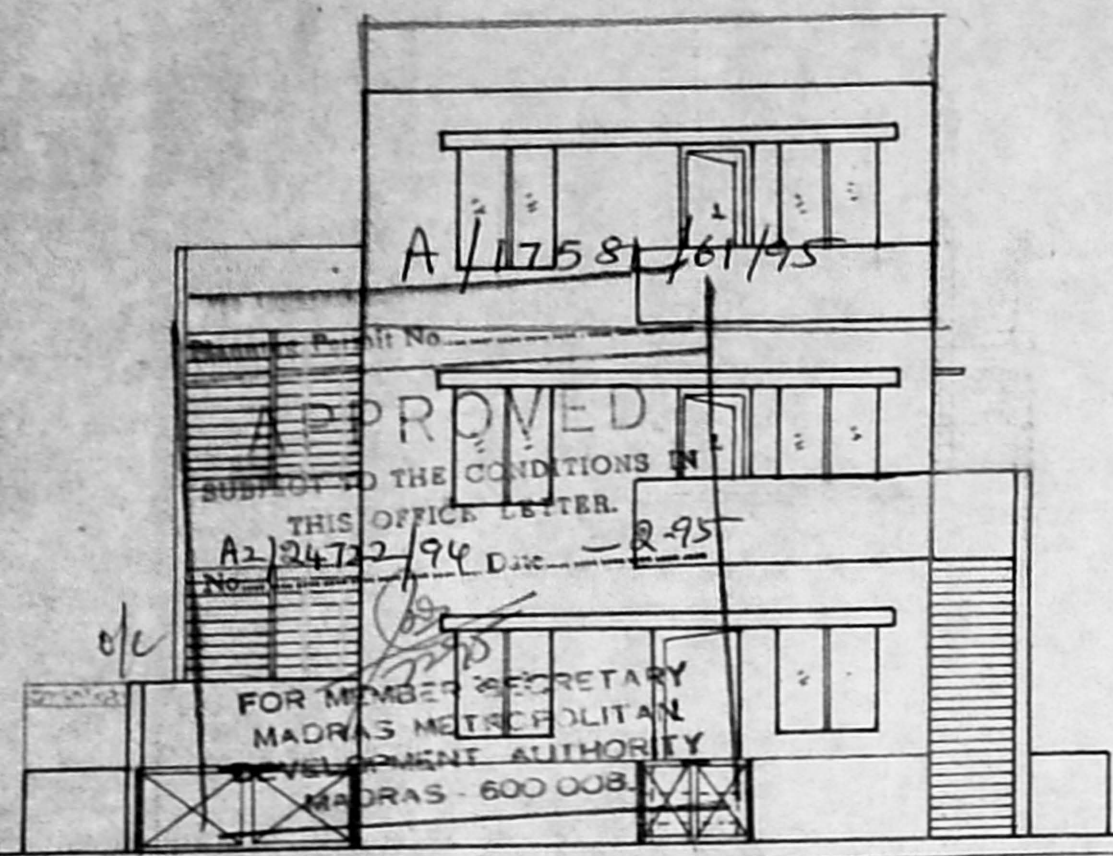 A/1758/61/95
Planning Permit No
APPROVED
SUBJECT TO THE CONDITIONS IN
THIS OFFICE LETTER.
A2/24722/94 -2-95
No Date
o/c
FOR MEMBER SECRETARY
MADRAS METROPOLITAN
DEVELOPMENT AUTHORITY
MADRAS - 600 008.